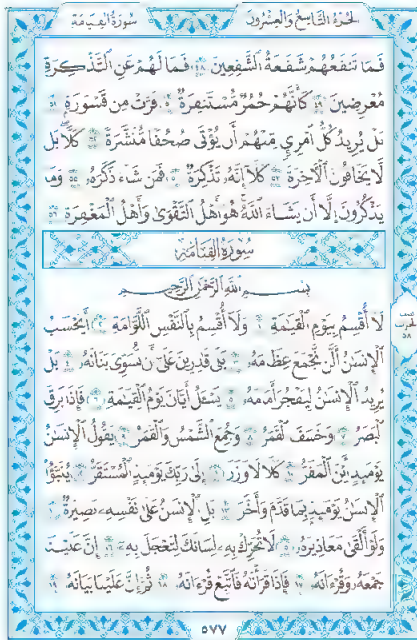 الجزء التاسع والعشرون
سورة القيامة
فَمَا تَنفَعُهُمْ شَفَٰعَةُ ٱلشَّٰفِعِينَ ٤٨ فَمَا لَهُمْ عَنِ ٱلتَّذْكِرَةِ
مُعْرِضِينَ ٤٩ كَأَنَّهُمْ حُمُرٌ مُّسْتَنفِرَةٌ ٥٠ فَرَّتْ مِن قَسْوَرَةٍۭ ٥١
بَلْ يُرِيدُ كُلُّ ٱمْرِئٍ مِّنْهُمْ أَن يُؤْتَىٰ صُحُفًا مُّنَشَّرَةً ٥٢ كَلَّا ۖ بَل
لَّا يَخَافُونَ ٱلْءَاخِرَةَ ٥٣ كَلَّآ إِنَّهُۥ تَذْكِرَةٌ ٥٤ فَمَن شَآءَ ذَكَرَهُۥ ٥٥ وَمَا
يَذْكُرُونَ إِلَّآ أَن يَشَآءَ ٱللَّهُ ۚ هُوَ أَهْلُ ٱلتَّقْوَىٰ وَأَهْلُ ٱلْمَغْفِرَةِ ٥٦
سورة القيامة
بِسْمِ ٱللَّهِ ٱلرَّحْمَٰنِ ٱلرَّحِيمِ
لَآ أُقْسِمُ بِيَوْمِ ٱلْقِيَٰمَةِ ١ وَلَآ أُقْسِمُ بِٱلنَّفْسِ ٱللَّوَّامَةِ ٢ أَيَحْسَبُ
ٱلْإِنسَٰنُ أَلَّن نَّجْمَعَ عِظَامَهُۥ ٣ بَلَىٰ قَٰدِرِينَ عَلَىٰٓ أَن نُّسَوِّىَ بَنَانَهُۥ ٤ بَلْ
يُرِيدُ ٱلْإِنسَٰنُ لِيَفْجُرَ أَمَامَهُۥ ٥ يَسْـَٔلُ أَيَّانَ يَوْمُ ٱلْقِيَٰمَةِ ٦ فَإِذَا بَرِقَ
ٱلْبَصَرُ ٧ وَخَسَفَ ٱلْقَمَرُ ٨ وَجُمِعَ ٱلشَّمْسُ وَٱلْقَمَرُ ٩ يَقُولُ ٱلْإِنسَٰنُ
يَوْمَئِذٍ أَيْنَ ٱلْمَفَرُّ ١٠ كَلَّا لَا وَزَرَ ١١ إِلَىٰ رَبِّكَ يَوْمَئِذٍ ٱلْمُسْتَقَرُّ ١٢ يُنَبَّؤُا۟
ٱلْإِنسَٰنُ يَوْمَئِذٍۭ بِمَا قَدَّمَ وَأَخَّرَ ١٣ بَلِ ٱلْإِنسَٰنُ عَلَىٰ نَفْسِهِۦ بَصِيرَةٌ ١٤
وَلَوْ أَلْقَىٰ مَعَاذِيرَهُۥ ١٥ لَا تُحَرِّكْ بِهِۦ لِسَانَكَ لِتَعْجَلَ بِهِۦٓ ١٦ إِنَّ عَلَيْنَا
جَمْعَهُۥ وَقُرْءَانَهُۥ ١٧ فَإِذَا قَرَأْنَٰهُ فَٱتَّبِعْ قُرْءَانَهُۥ ١٨ ثُمَّ إِنَّ عَلَيْنَا بَيَانَهُۥ ١٩
٥٨
٥٧٧